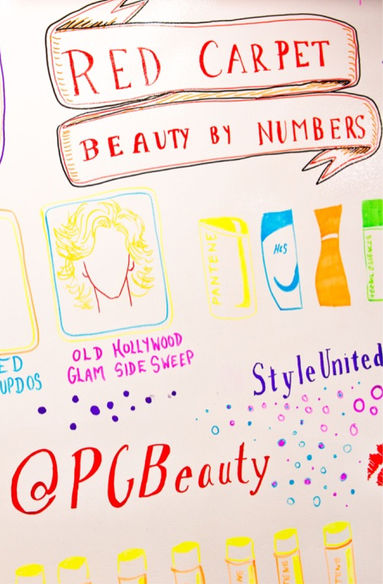 RED CARPET
BEAUTY BY NUMBERS
PANTENE
H&S
ED
UPDOS
OLD HOLLYWOOD
GLAM SIDE SWEEP
StyleUnited
@PGBeauty